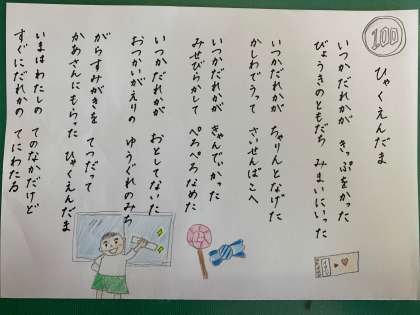 100
ひゃくえんだま
いつかだれかが きっぷをかった
びょうきのともだち みまいにいった
いつかだれかが ちゃりんとなげた
かしわでうって さいせんばこへ
いつかだれかが きゃんでぃかった
みせびらかして ぺろぺろなめた
いつかだれかが おとしてないた
おつかいがえりの ゆうぐれのみち
がらすみがきを てつだって
かあさんにもらった ひゃくえんだま
いまはわたしの てのなかだけど
すぐにだれかの てにわたる